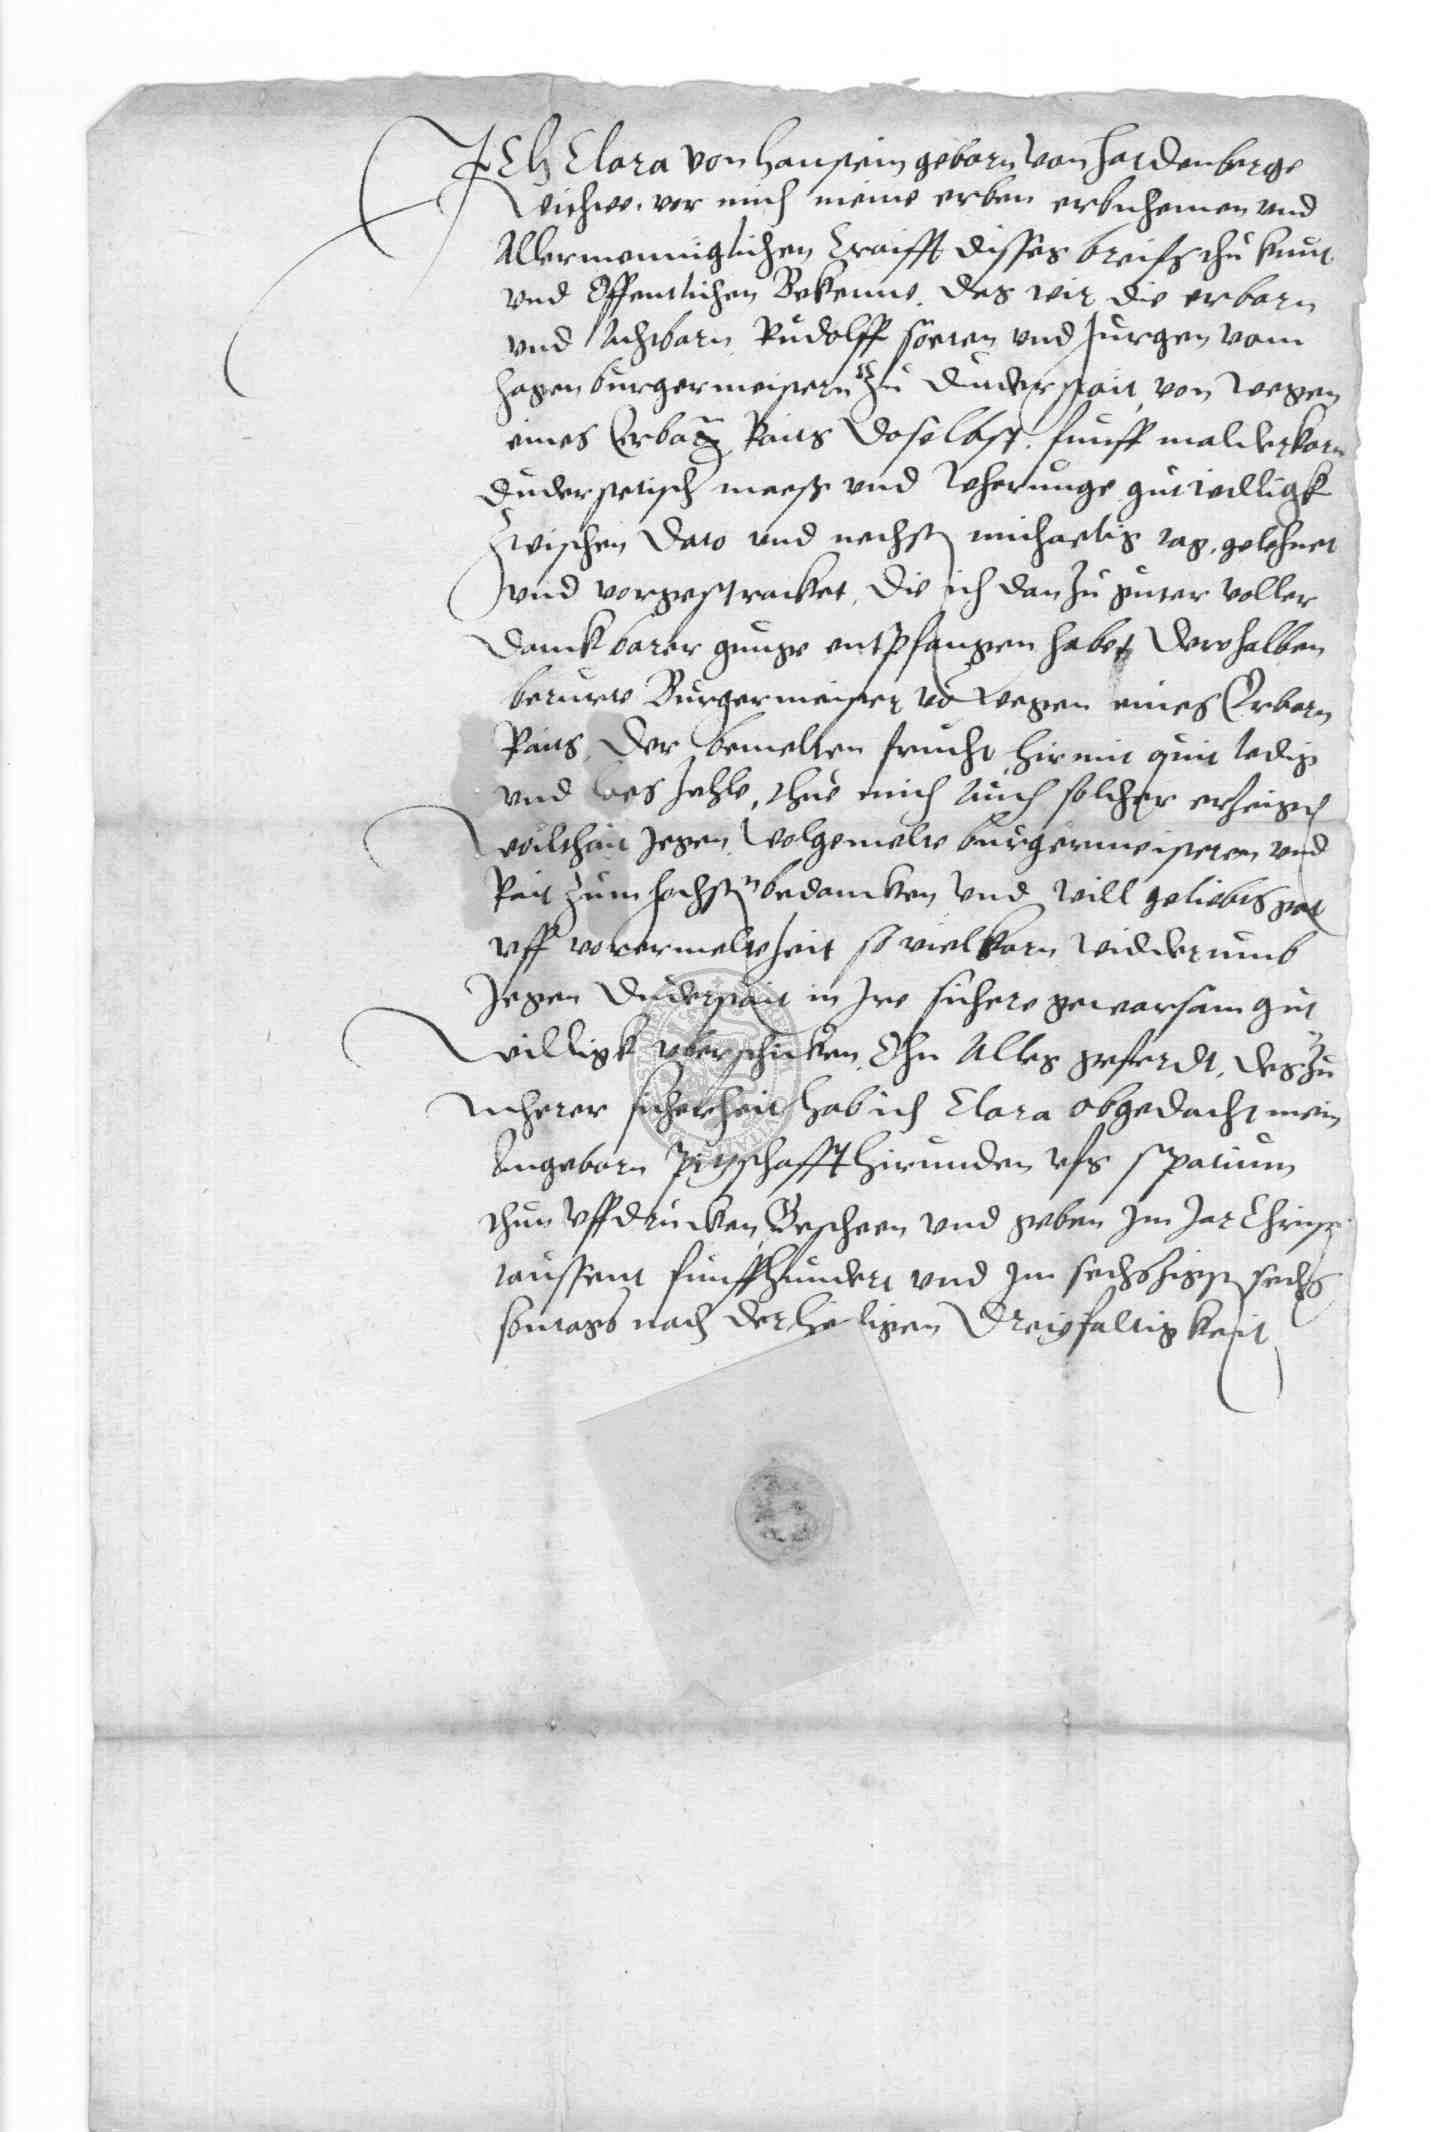 Ich Clara von Hanstein geborn von Hardenberge
Withwe. vor mich meine erben erbnhemen vnd
Allermenniglichen Crafft disses breifs thu kunt
vnd Offentlichen Bekenne. das mir die erbarn
vnd Achtbarn Rudolff söeten vnd Jurgen vom
hagen burgermeistern zu Duderstait, von wegen
eines Erbarn Raits doselbst. funff malder korn
duderstetisch maeß vnd Wherunge gutwilligk
Zwischen dato vnd nechst michaelis tag. gelehnet
vnd vorgestracket. die ich dan zu guter voller
danckbarer gnuge entpfangen habe, derohalben
berurte Burgermeister vo wegen eines Erbarn
Raits, der bemelten frucht, hirmit quit ledig
vnd loes zehle, thue mich auch solcher ertzeigt
wolthait jegen wolgemelte burgermeistern vnd
Rait zum hochsten bedancken vnd will geliebts got
vff vorermelte zeit so viel korn widderumb
Jegen Duderstait in Ire sichere gewarsam gut
willigk vberschicken. Ohn Alles geferdt, des zu
meherer sicherheit hab ich Clara obgedacht mein
Angeborn pitzschafft hirunden vfs spatium
thun vffdrucken, Gescheen vnd geben Im Jar Christi
taussent funffhundert vnd Im sechszigst sechs
sontags nach der heiligen Dreigfaltigkeit